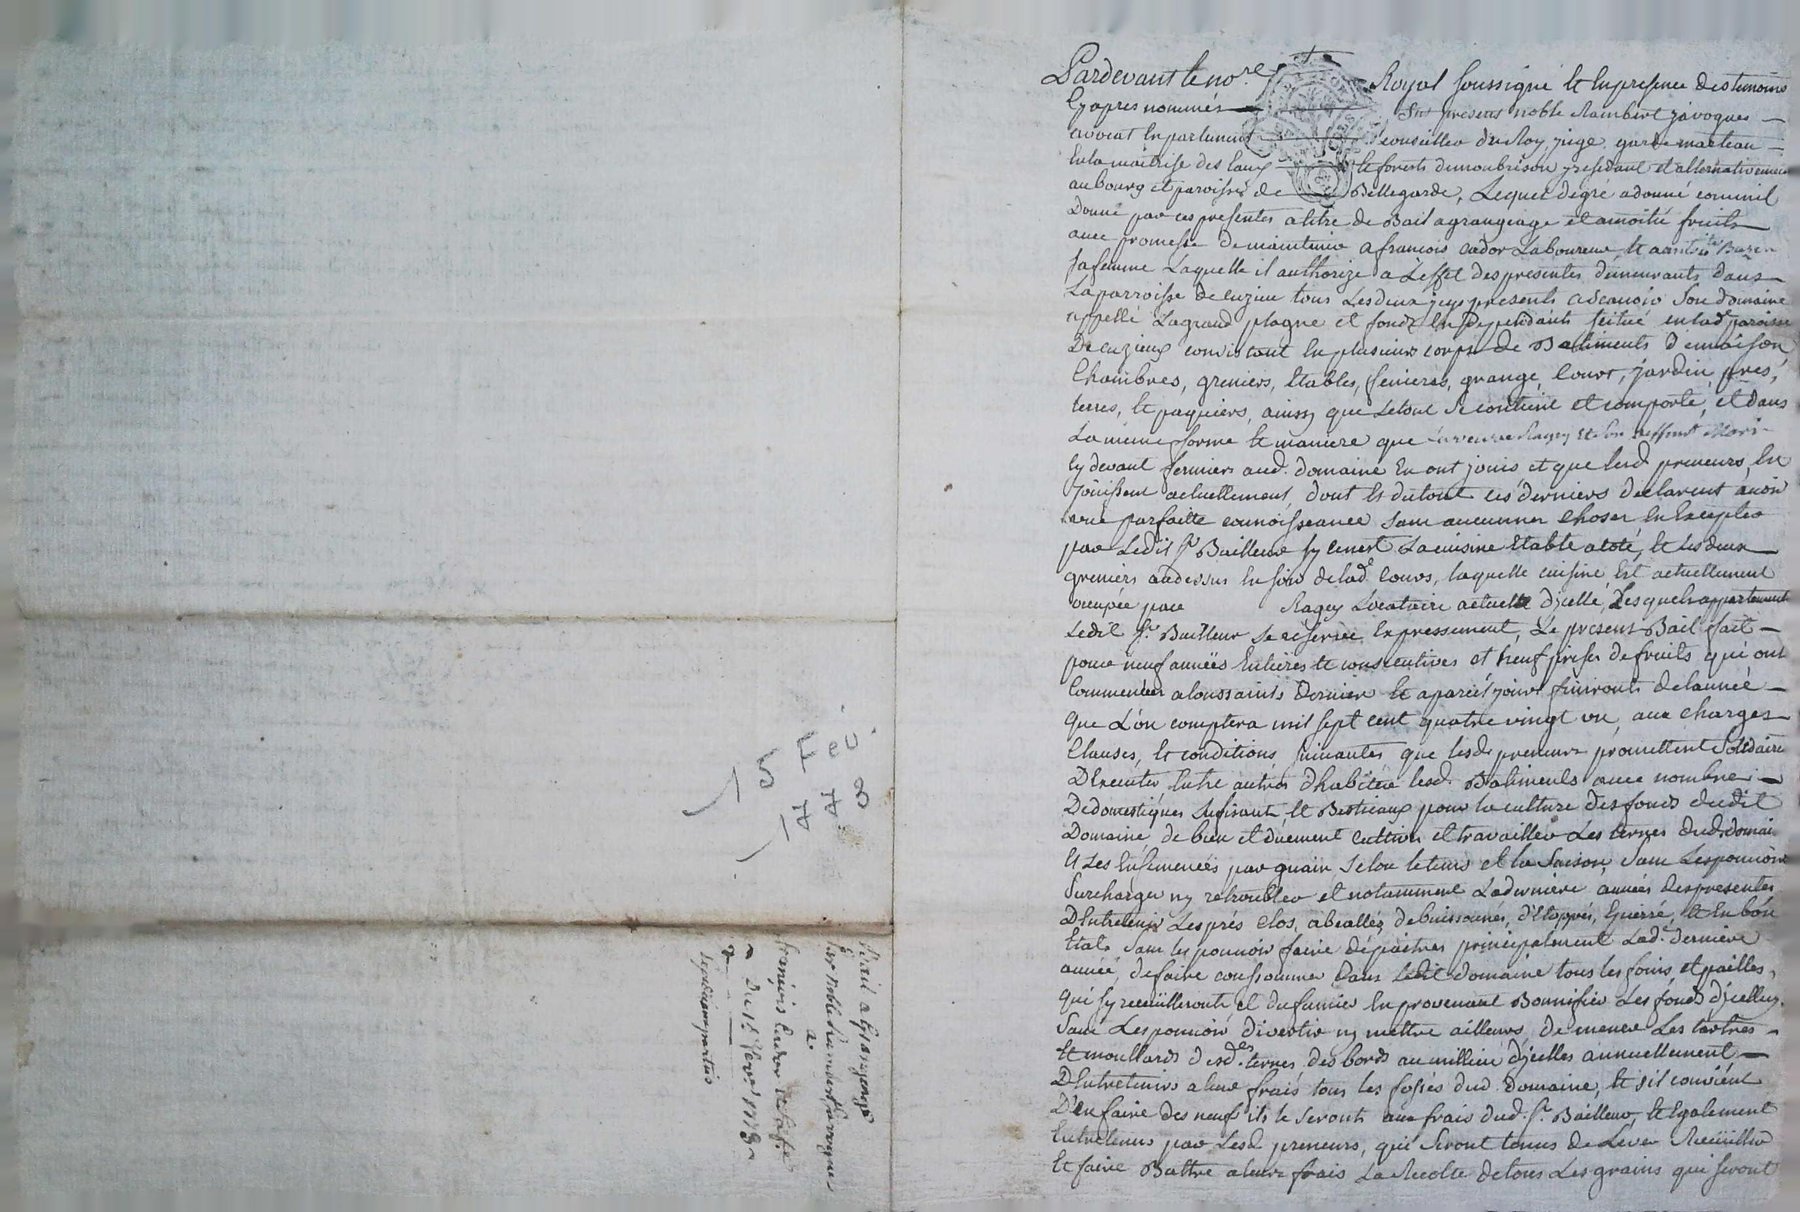 Pardevant le no.re Royal soussigné et en presence des temoins
cy apres nommés — fut present noble Rambert javogues —
avocat en parlement conseiller du Roy, juge garde marteau —
en la maitrise des eaux et forests de monbrison residant et alternativement
au bourg et paroisse de Bellegarde, Lequel degré a donné comme il
Donne par ces presentes a titre de Bail a grangeage et a moitié fruits
avec promesse de maintenir a francois cador Laboureur, et
sa femme Laquelle il authorize a L'effet des presentes demeurants dans
La parroisse de cuzieu tous Les deux icy presents a scavoir son domaine
appellé Lagrand plagne et fonds en dependants scitué en lad.e paroisse
De cuzieux consistant en plusieurs corps de Batiments de maison
Chambres, greniers, Etables, fenieres, grange, Cour, jardin, prés,
terres, et paquiers, ainsy que Letout se contient et comporte, et dans
La meme forme et maniere que La veuve Ragey et son deffunt Mari
cy devant fermiers aud. domaine en ont jouis et que lesd. preneurs en
jouissent actuellement, dont et du tout ces derniers declarent avoir
une parfaitte connoissance sans aucunnes choses en Excepter
par Ledit s.r Bailleur sy cenest La cuisine Etable a coté, et les deux
greniers audessus en soir de lad.e Cour, laquelle cuisine est actuellement
occupée par Ragey Locataire actuelle d'jcelle, Lesquels appartements
Ledit s.r Bailleur se reserve Expressement, Le present Bail fait —
pour neuf années Entieres et consecutives et neuf prises de fruits qui ont
Commencées a toussaints dernier et a pareil jour finironts de lannée —
que L'on comptera mil sept cent quatre vingt un aux charges
Clauses, et conditions suivantes que lesd. preneurs promettent solidaire
D'Executer, Entre autres d'habiter lesd. Batiments avec nombre —
De domestiques sufisants et Bestiaux pour la culture des fonds dudit
Domaine, de bien et duement cultiver et travailler Les terres dud. domai
et Les Ensemencées par quain selon le tems et la saison, sans Les pouvoir
surcharger ny retroubler et notamment La derniere année des presentes
D'Entretenir Les prés clos, abeallés, debuissonés, d'Etoppés, Eguierré, et en bon
Etat, sans les pouvoir faire dépaitres principalement Lad.e derniere
année, de faire consommer dans Ledit domaine tous les foins et pailles,
qui sy receüilleronts, et du fumier en provenant Bonnifier Les fonds d'jcelluy
sans Les pouvoir divertir ny mettre ailleurs, de mener Les tertres —
et moullards desd.es terres, des bords au millieu d'jcelles annuellement —
D'Entretenirs a leur frais tous les fossés dud. domaine, et s'il convient
D'en faire des neufs ils le seronts aux frais dud. s.r Bailleur, et Egalement
Entretenus par Lesd. preneurs, qui seront tenus de Lever Receüillir
et faire Battre a leurs frais La Recolte de tous Les grains qui seront
Bail a Grangeage
Par Noble Rambert Javogues
a
françois Cador et sa fe
Du 1.er fevr 1773